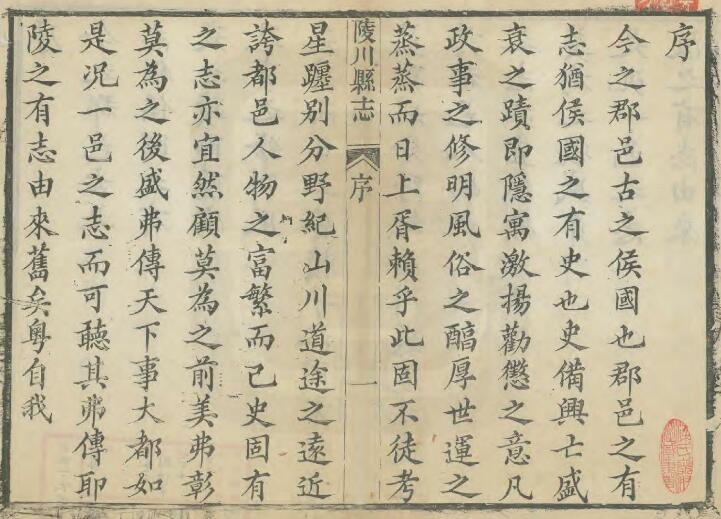 序
今之郡邑古之侯國也郡邑之有
志猶侯國之有史也史備興亡盛
衰之蹟即隱寓激揚勸懲之意凡
政事之修明風俗之醕厚世運之
蒸蒸而日上胥賴乎此固不徒考
陵川縣志
序
一
星躔別分野紀山川道途之遠近
誇都邑人物之富繁而已史固有
之志亦宜然顧莫為之前美弗彰
莫為之後盛弗傳天下事大都如
是况一邑之志而可聽其弗傳耶
陵之有志由來舊矣粵自我